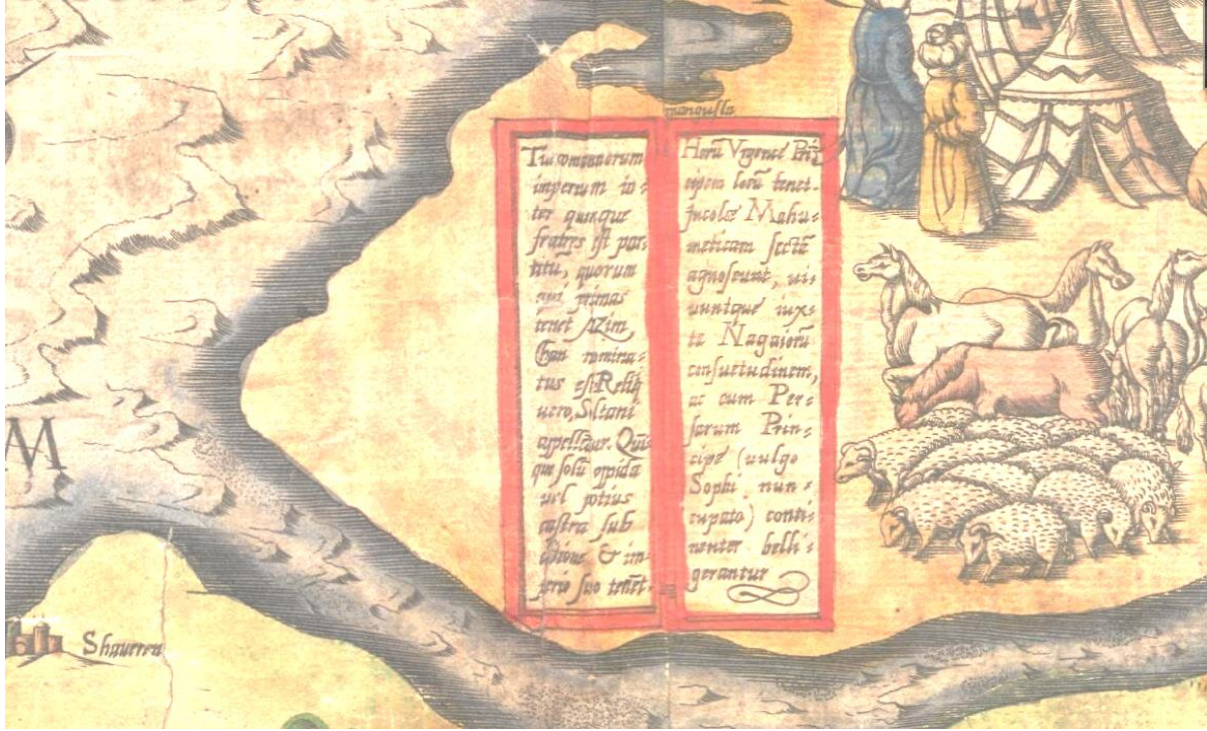 mangusla
Turcomannorum
imperium in⸗
ter quinque
fratres est par⸗
titū, quorum
qui primas
tenet AZim,
Chan nomina⸗
tus est Reliq̃
uero, Soltani
appellātur. Quin⸗
que solū oppida
uel potius
castra sub
ditione & im⸗
perio suo tenēt.
Horū Vrgence Prin⸗
cipem locū tenet.
Incolæ Mahu⸗
meticam sectā
agnoscunt, ui⸗
uuntque iux⸗
ta Nagaiorū
consuetudinem,
ac cum Per⸗
sarum Prin⸗
cipe (uulgo
Sophi nun⸗
cupato) conti⸗
nenter belli⸗
gerantur
M
Shaurren